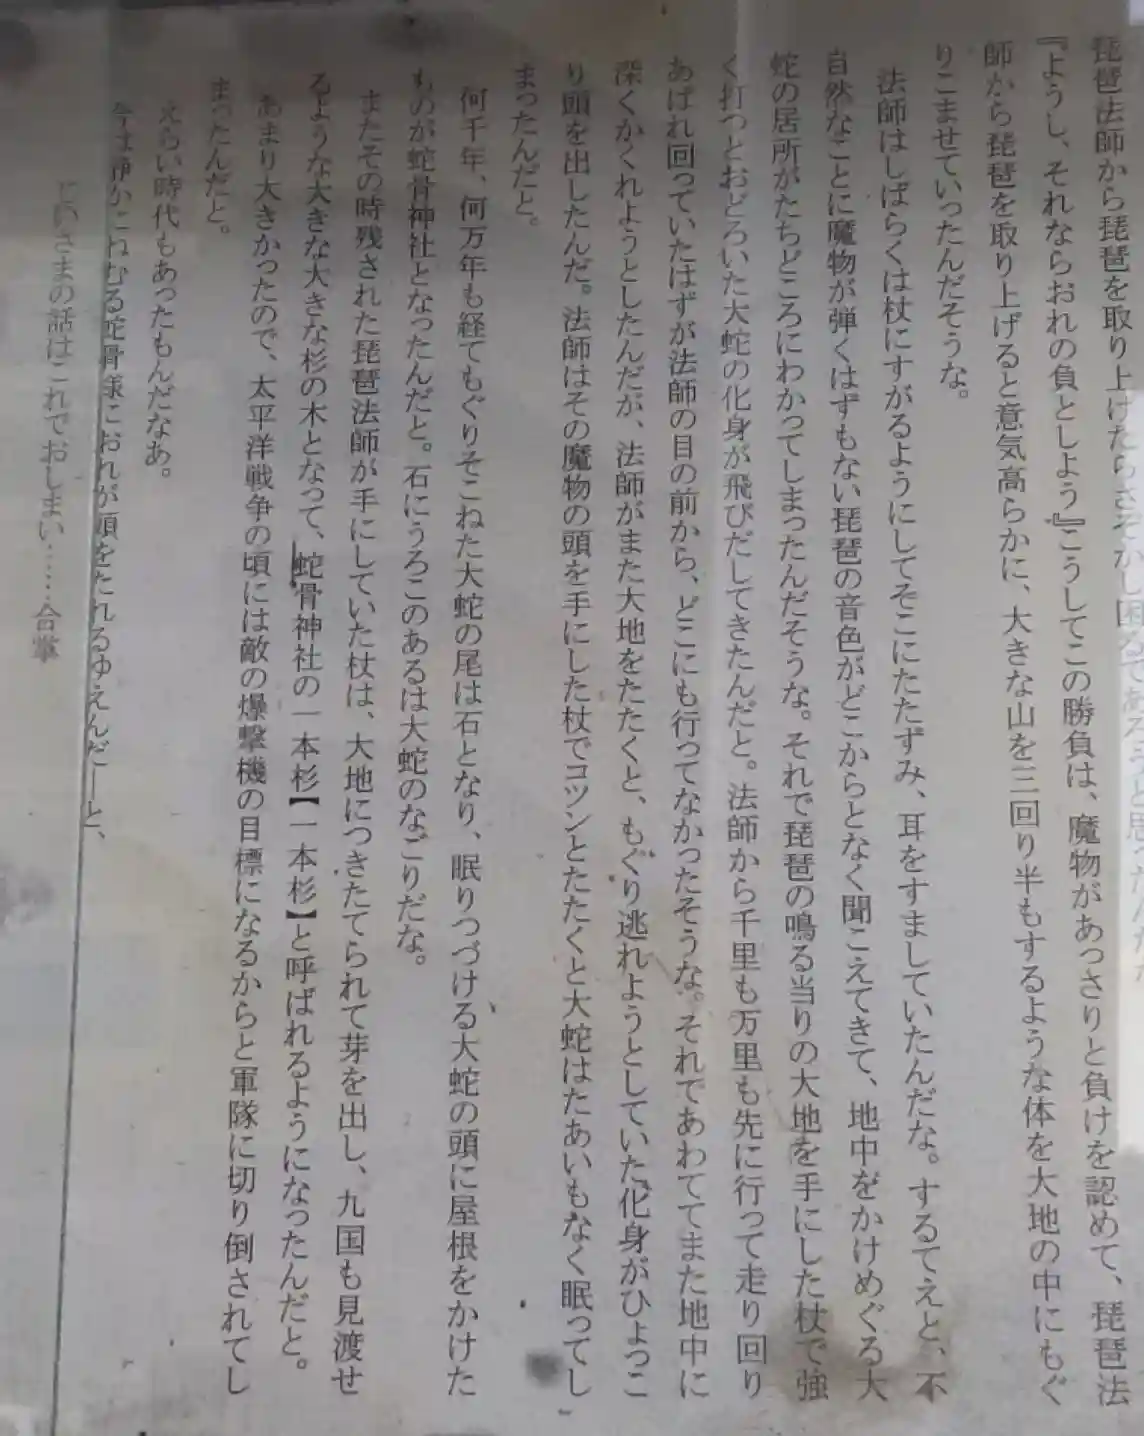 琵琶法師から琵琶を取り上げたらさぞかし困るであろうと思ったんだな
『ようし、それならおれの負としよう』こうしてこの勝負は、魔物があっさりと負けを認めて、琵琶法
師から琵琶を取り上げると意気高らかに、大きな山を三回り半もするような体を大地の中にもぐ
りこませていったんだそうな。
法師はしばらくは杖にすがるようにしてそこにたたずみ、耳をすましていたんだな。するてえと、不
自然なことに魔物が弾くはずもない琵琶の音色がどこからとなく聞こえてきて、地中をかけめぐる大
蛇の居所がたちどころにわかってしまったんだそうな。それで琵琶の鳴る当りの大地を手にした杖で強
く打つとおどろいた大蛇の化身が飛びだしてきたんだと。法師から千里も万里も先に行って走り回り
あばれ回っていたはずが法師の目の前から、どこにも行ってなかったそうな。それであわててまた地中に
深くかくれようとしたんだが、法師がまた大地をたたくと、もぐり逃れようとしていた化身がひょっこ
り頭を出したんだ。法師はその魔物の頭を手にした杖でコツンとたたくと大蛇はたあいもなく眠ってし
まったんだと。
何千年、何万年も経てもぐりそこねた大蛇の尾は石となり、眠りつづける大蛇の頭に屋根をかけた
ものが蛇骨神社となったんだと。石にうろこのあるは大蛇のなごりだな。
またその時残された琵琶法師が手にしていた杖は、大地につきたてられて芽を出し、九国も見渡せ
るような大きな大きな杉の木となって、蛇骨神社の一本杉【一本杉】と呼ばれるようになったんだと。
あまり大きかったので、太平洋戦争の頃には敵の爆撃機の目標になるからと軍隊に切り倒されてし
まったんだと。
えらい時代もあったもんだなあ。
今は静かにねむる蛇骨様におれが頭をたれるゆえんだーと、
じいさまの話はこれでおしまい……合掌